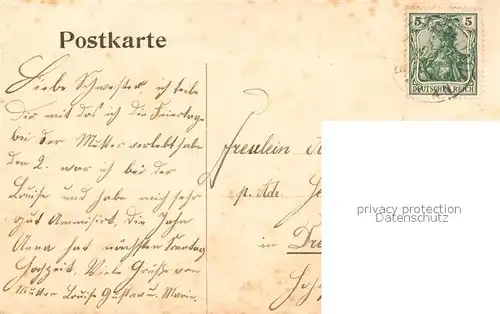 Postkarte
5 5
DEUTSCHES REICH
Liebe Schwester, ich teile
Dir mit das ich die Feiertage
bei der Mutter verlebt habe
den 2. war ich bei der
Louise und habe mich sehr
gut Ammisirt. Die Jahn
Anna hat nächsten Sonntag
Hochzeit. Viele Grüße von
Mutter Louise Gustav u. Marie.
Freulein
p. Adr.
in Dre
privacy protection
Datenschutz